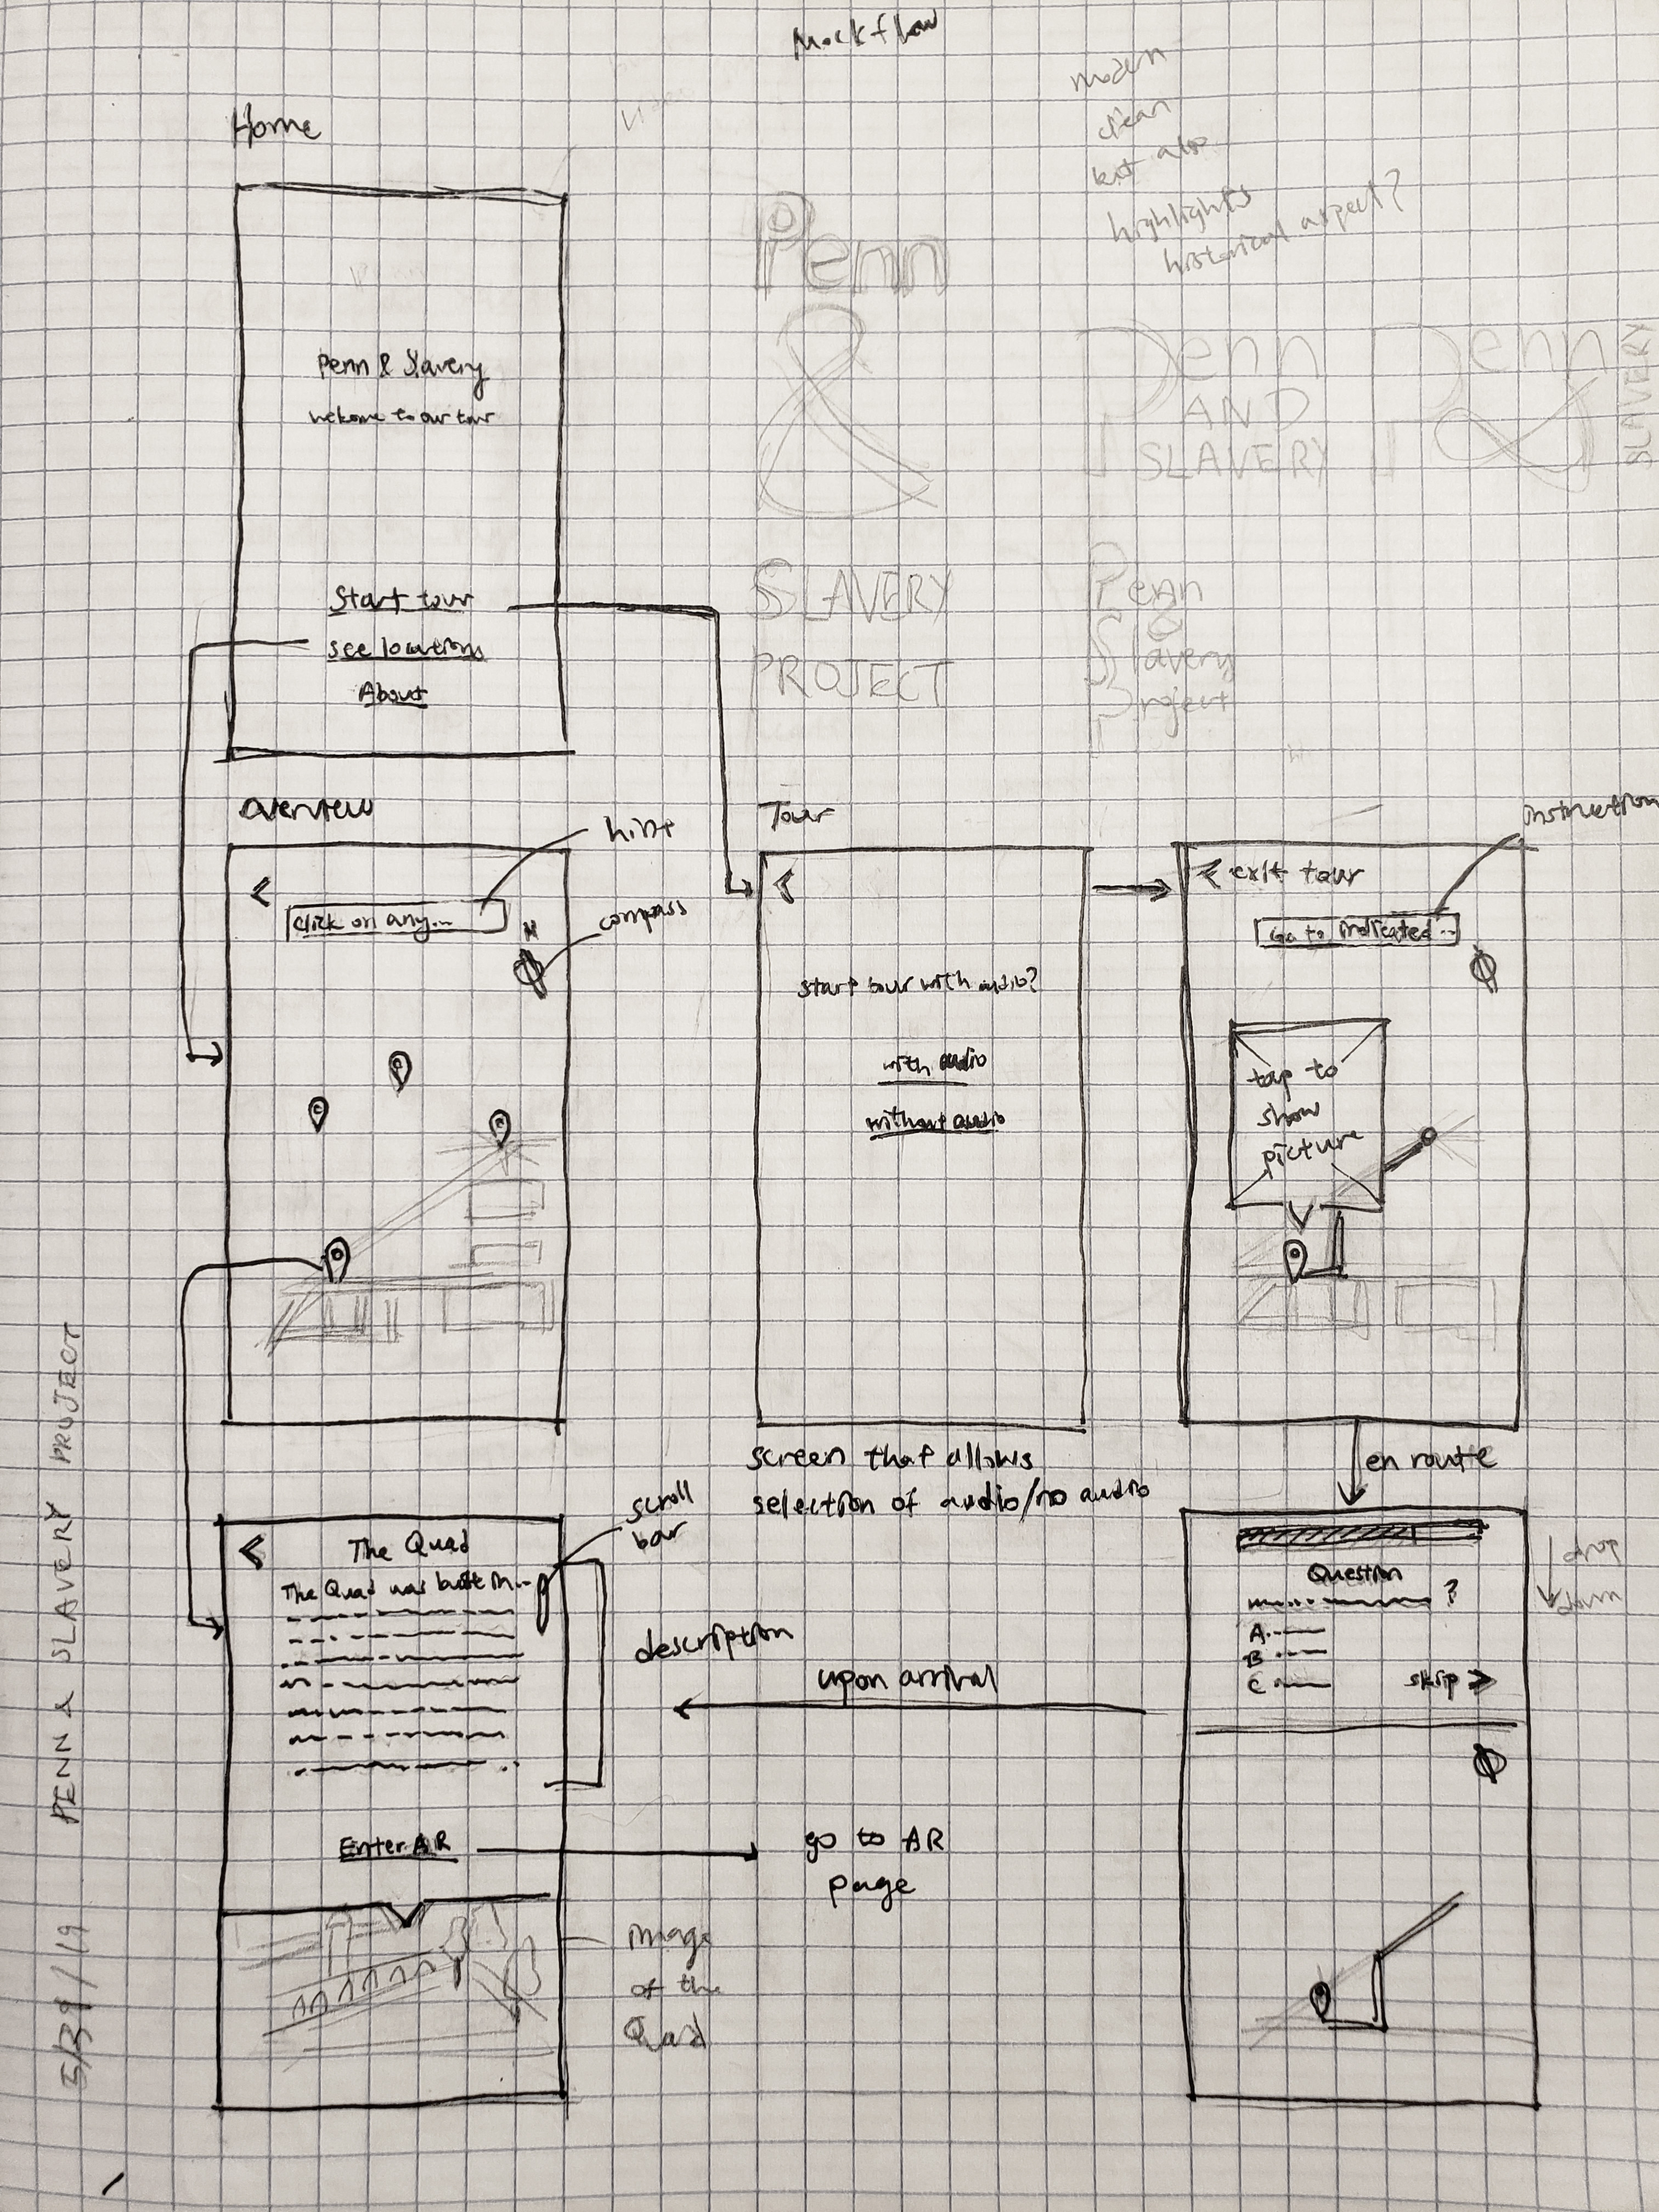 Mockflow
modern
clean
but also
highlights
historical aspect?
Video
Home
Penn & Slavery
welcome to our tour
Start tour
see locations
About
Penn
&
SLAVERY
PROJECT
Penn
AND
SLAVERY
Penn
&
SLAVERY
Penn
&
Slavery
Project
overview
hint
<
click on any...
compass
N
Tour
<
start tour with audio?
with audio
without audio
screen that allows
selection of audio/no audio
instruction
< exit tour
Go to indicated...
tap to
show
picture
en route
scroll
bar
<
The Quad
The Quad was built in...
description
Enter AR
go to AR
page
image
of the
Quad
upon arrival
Question
?
A.
B
C
skip >>
drop
down
PENN & SLAVERY PROJECT